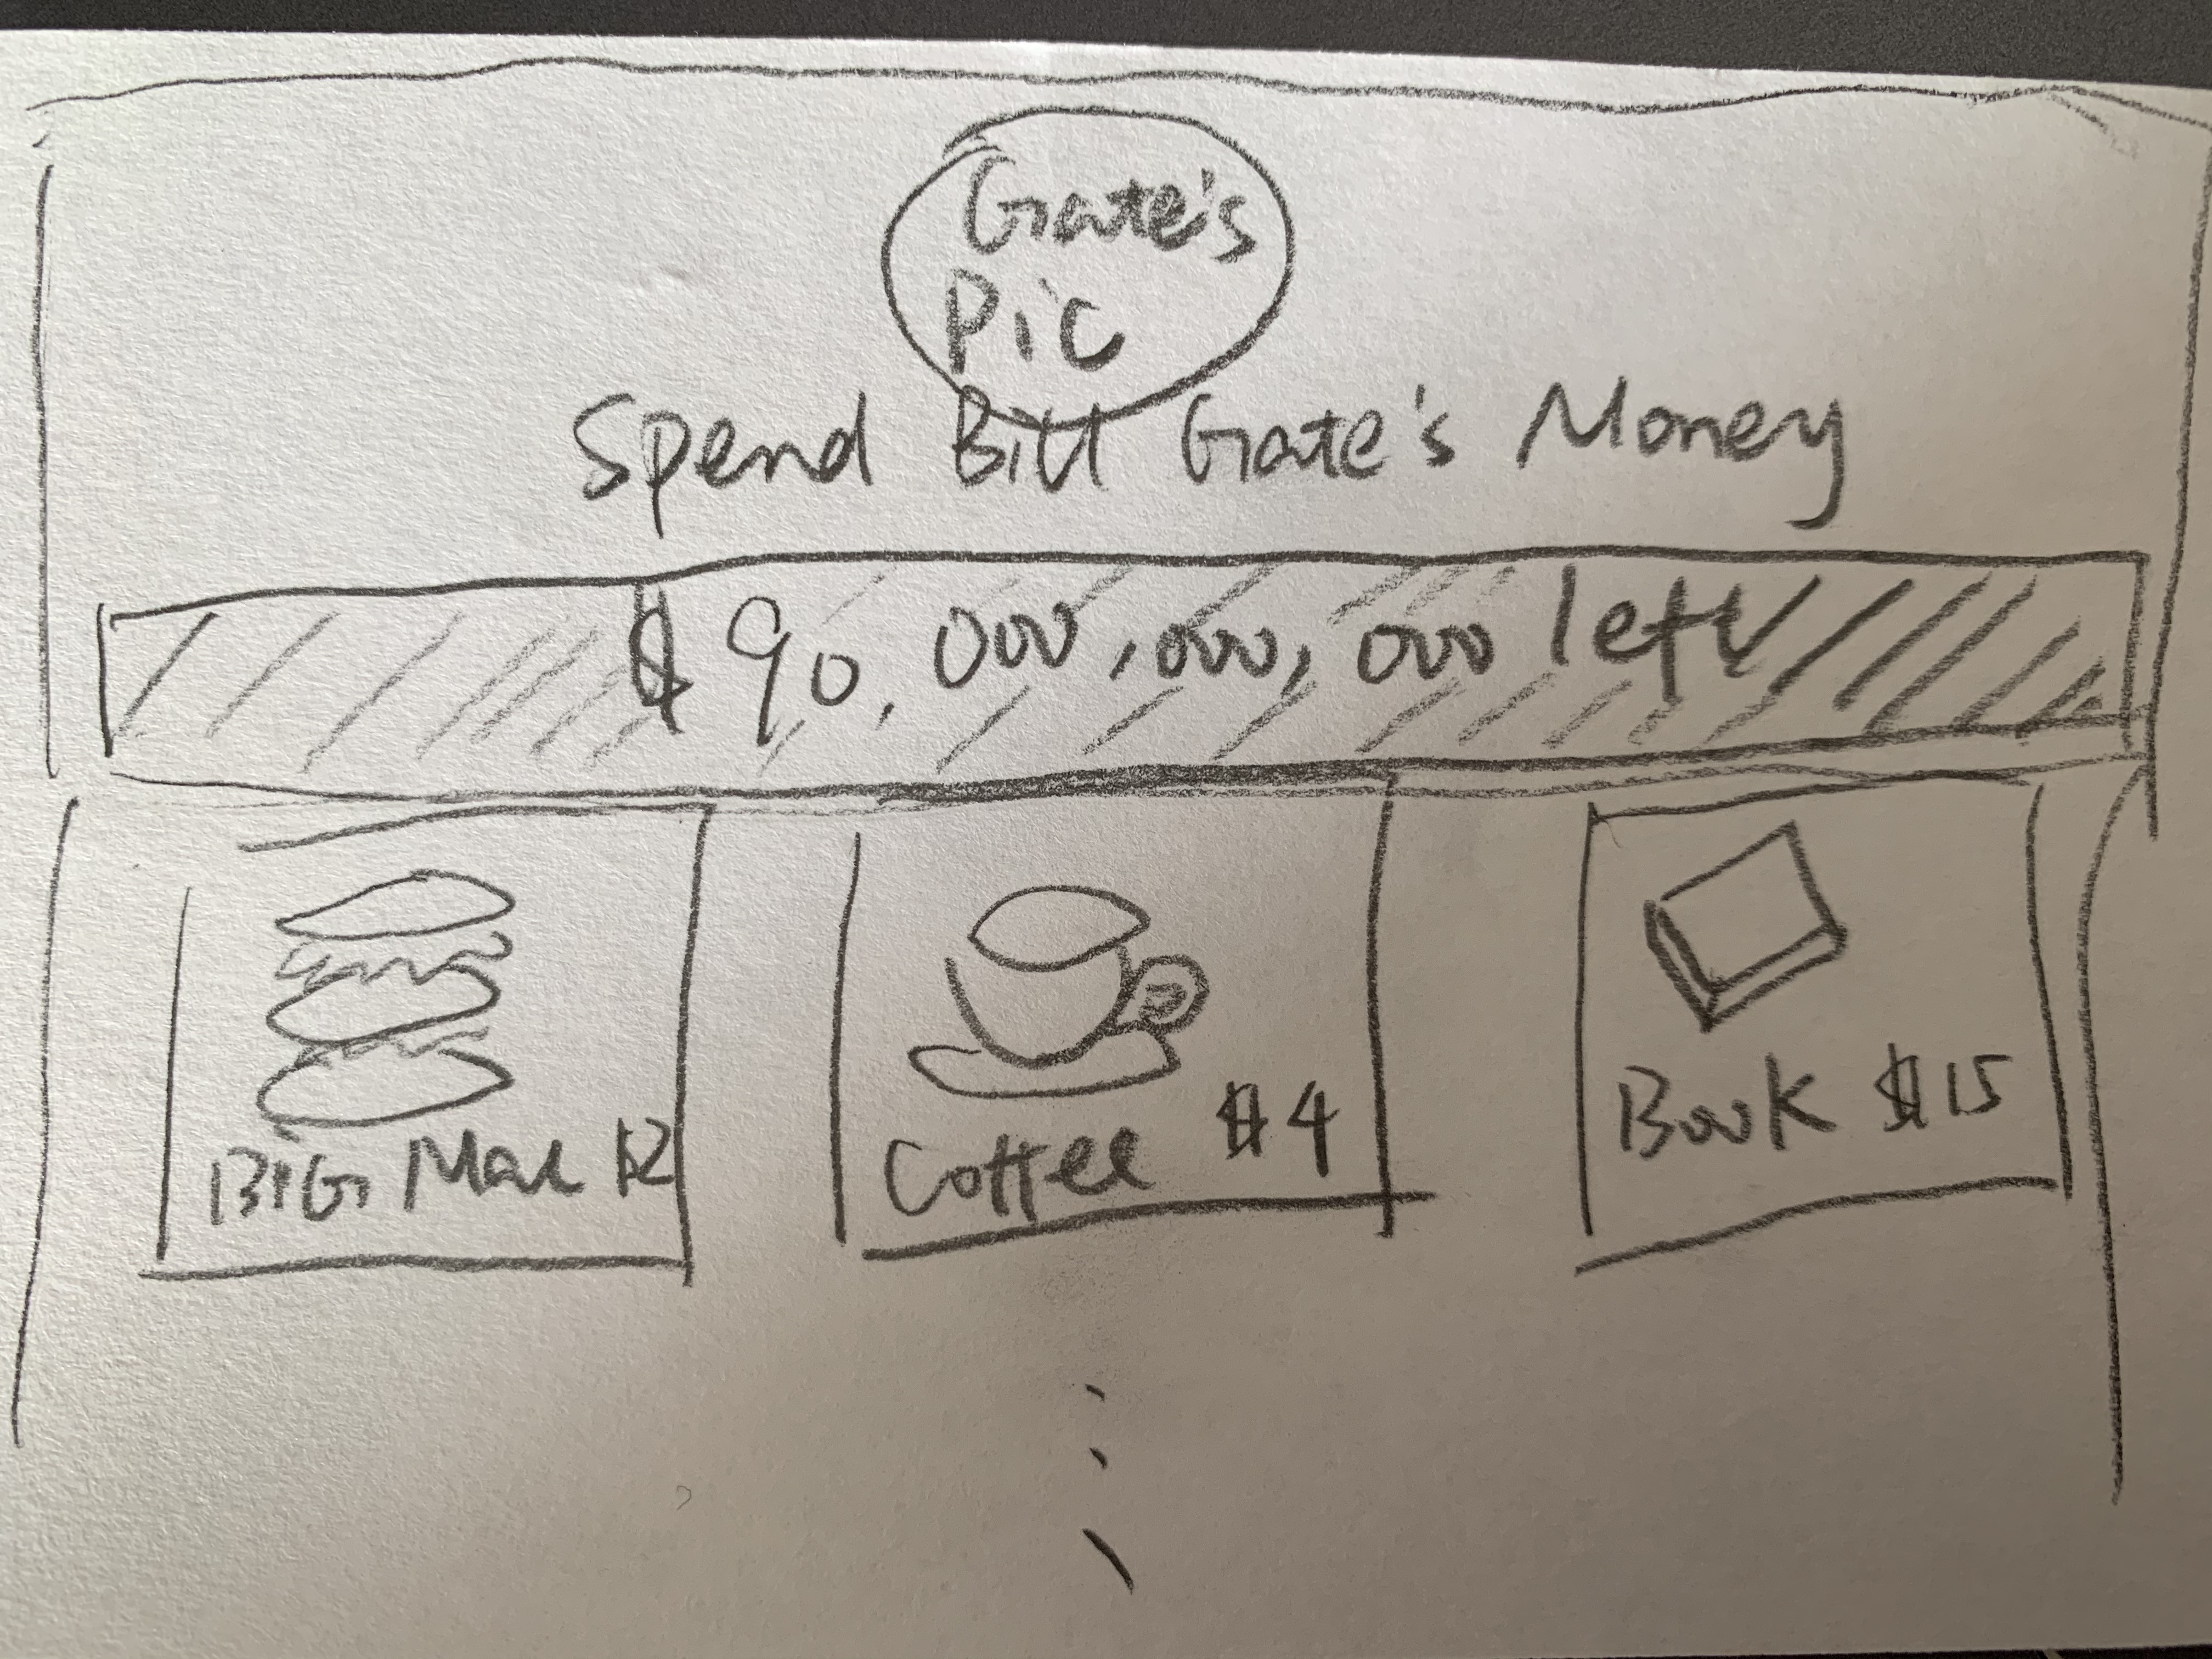 Gate's
Pic
Spend Bill Gate's Money
$ 90,000,000,000 left
BIG Mac $2
Coffee $4
Book $15